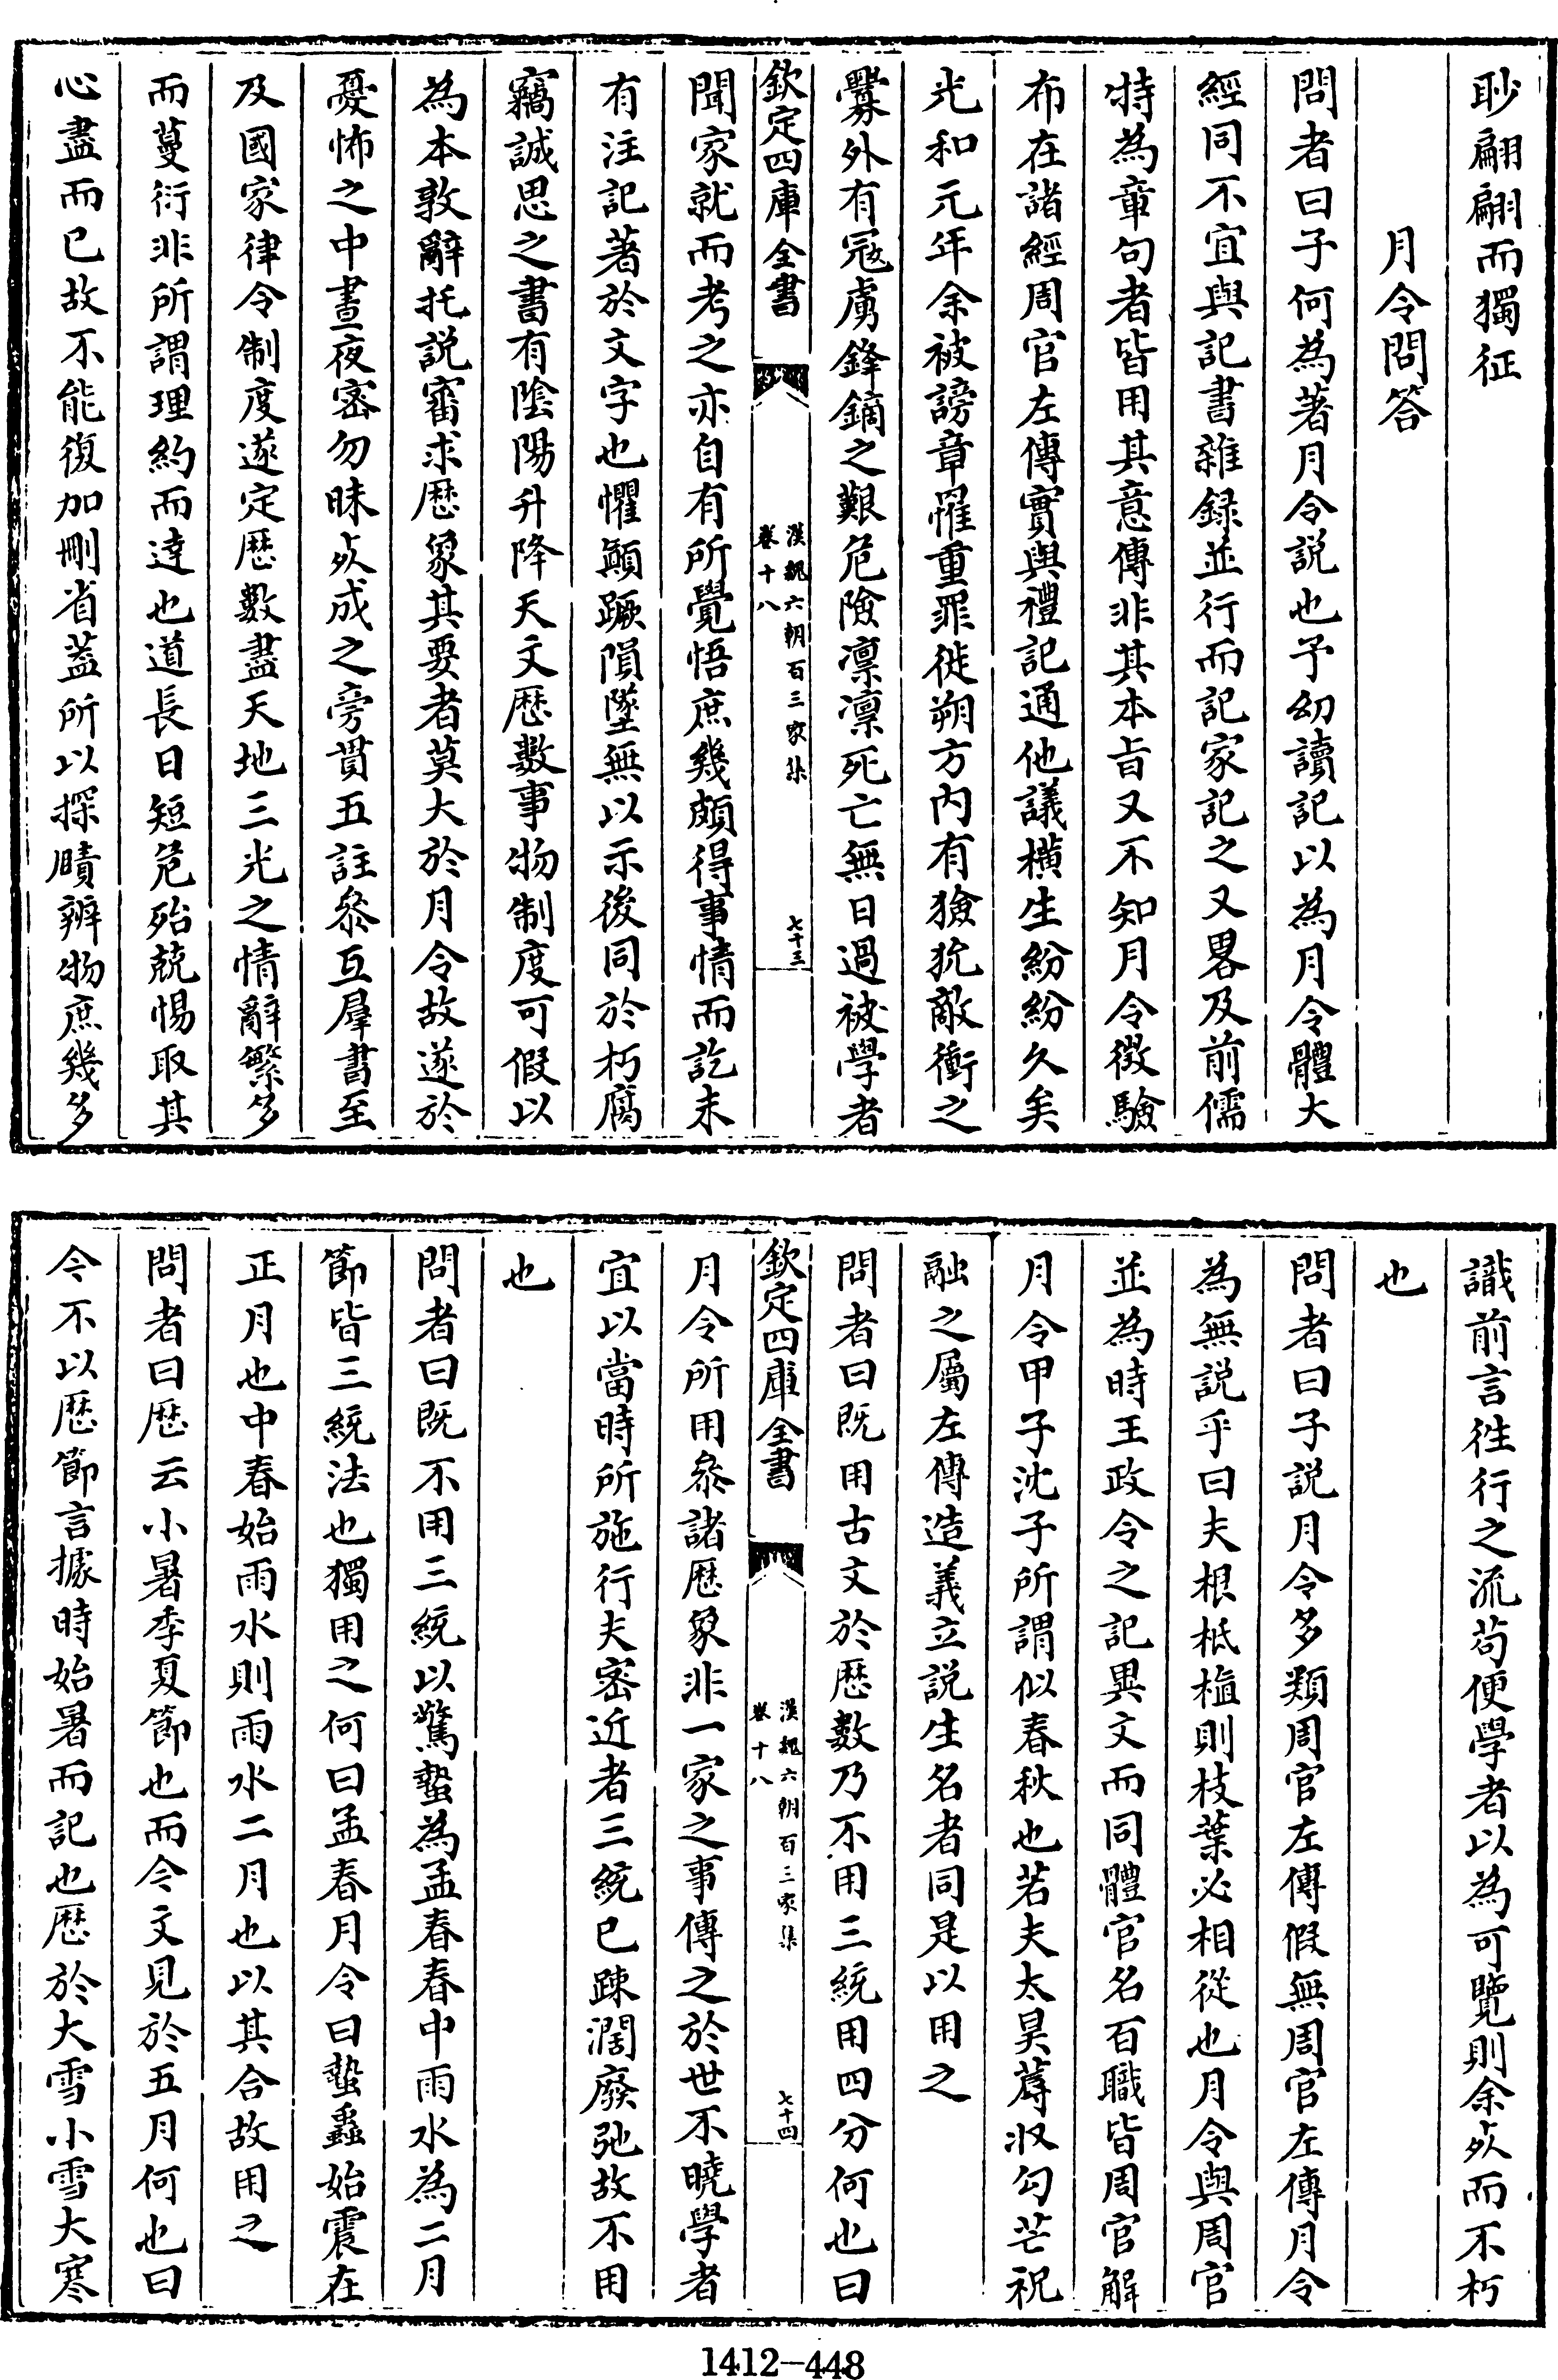 眇翩翩而獨征
月令問答
問者曰子何為著月令説也予幼讀記以為月令體大
經同不宜與記書雜録並行而記家記之又畧及前儒
特為章句者皆用其意傳非其本旨又不知月令徴驗
布在諸經周官左傳實與禮記通他議横生紛紛久矣
光和元年余被謗章罹重罪徙朔方内有獫狁敵衝之
釁外有冦虜鋒鏑之艱危險凛凛死亡無日過被學者
欽定四庫全書
漢魏六朝百三家集
卷十八
七十三
聞家就而考之亦自有所覺悟庶幾頗得事情而訖未
有注記著於文字也懼顛蹶隕墜無以示後同於朽腐
竊誠思之書有隂陽升降天文厯數事物制度可假以
為本敦辭托説審求厯象其要者莫大於月令故遂於
憂怖之中晝夜密勿昧㸃成之旁貫五註叅互羣書至
及國家律令制度遂定厯數盡天地三光之情辭繁多
而蔓衍非所謂理約而達也道長日短危殆兢惕取其
心盡而已故不能復加刪省葢所以探賾辨物庶幾多
識前言徃行之流苟便學者以為可覽則余㸃而不朽
也
問者曰子説月令多類周官左傳假無周官左傳月令
為無説乎曰夫根柢植則枝葉必相從也月令與周官
並為時王政令之記異文而同體官名百職皆周官解
月令甲子沈子所謂似春秋也若夫太昊蓐收勾芒祝
融之屬左傳造義立説生名者同是以用之
問者曰既用古文於厯數乃不用三統用四分何也曰
欽定四庫全書
漢魏六朝百三家集
卷十八
七十四
月令所用叅諸厯象非一家之事傳之於世不曉學者
宜以當時所施行夫密近者三統已踈濶廢弛故不用
也
問者曰既不用三統以驚蟄為孟春春中雨水為二月
節皆三統法也獨用之何曰孟春月令曰蟄蟲始震在
正月也中春始雨水則雨水二月也以其合故用之
問者曰厯云小暑季夏節也而令文見於五月何也曰
令不以厯節言據時始暑而記也厯於大雪小雪大寒
1412—448